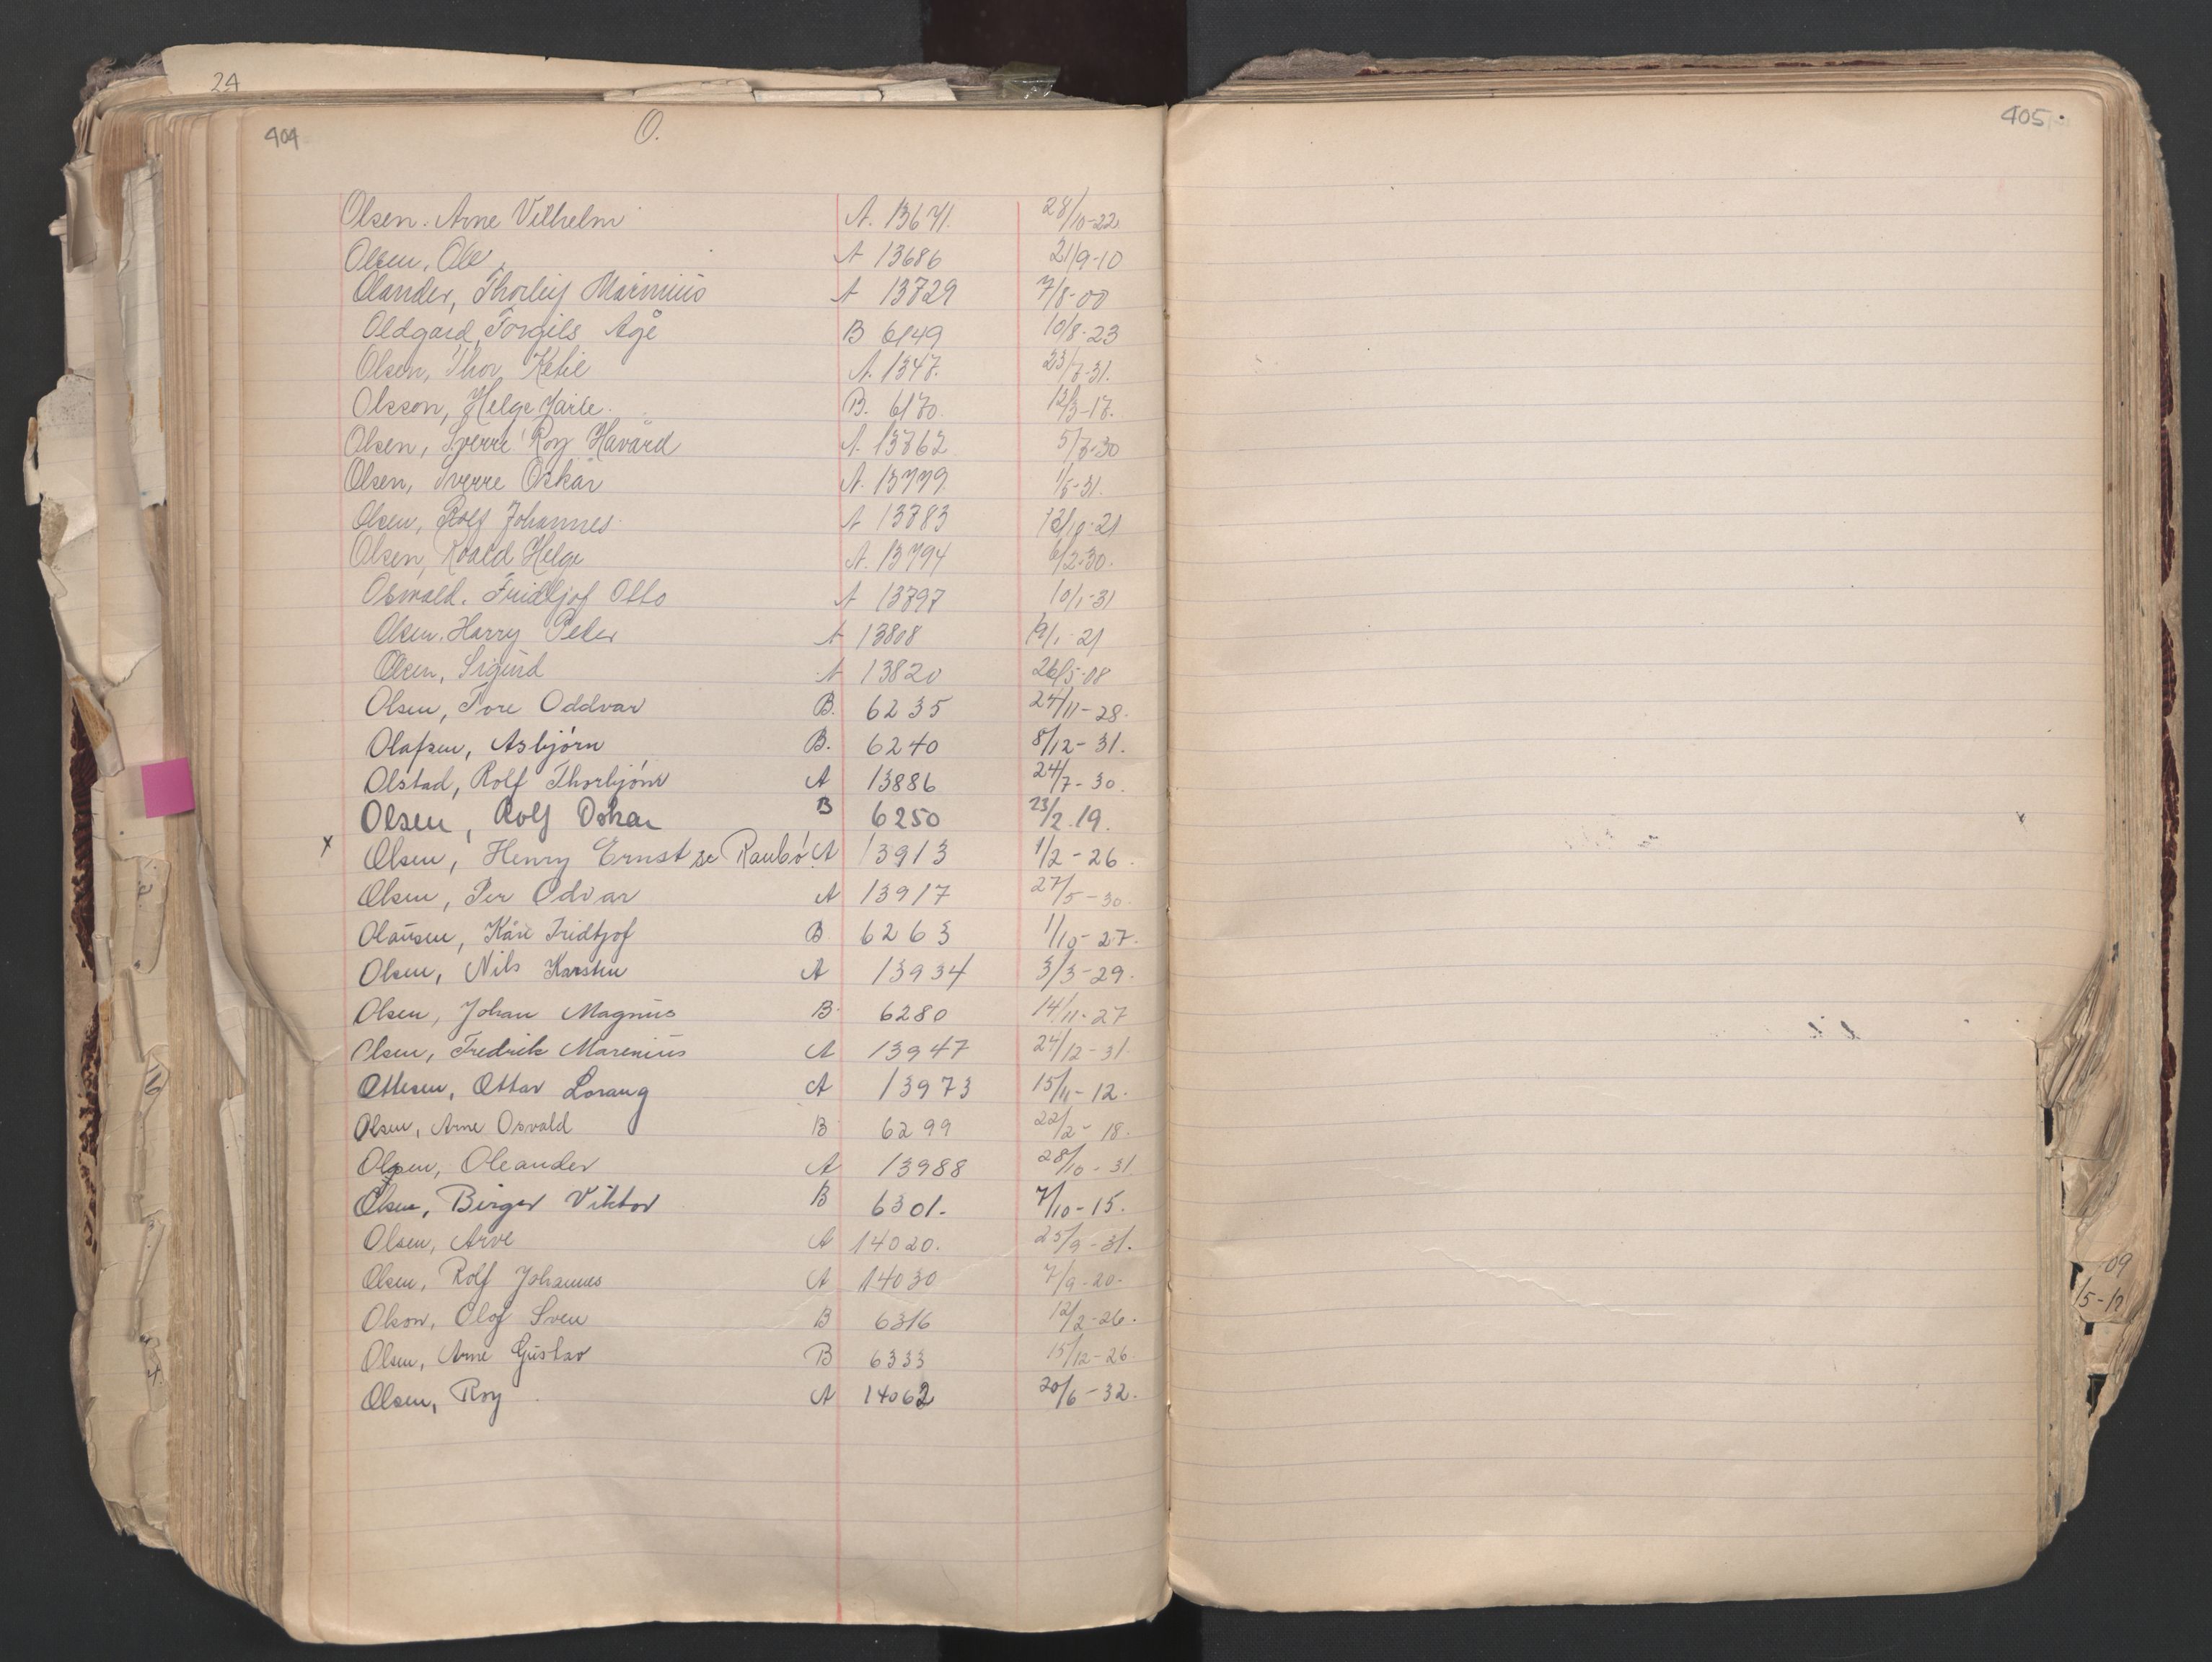 24
404
O.
405
Olsen. Arne Vilhelm A. 13671. 28/10-22
Olsen, Ole A 13686 21/9-10
Olander, Thorleif Marinius A 13729 7/8-00
Oldgard, Torgils Åge B 6149 10/8-23
Olsen, Thor Ketil A. 1347. 23/7-31.
Olsson, Helge Jarle. B. 6170. 12/3-17.
Olsen, Sverre Roy Håvard A. 13762 5/7-30
Olsen, Sverre Oskar A. 13779. 1/5-31.
Olsen, Rolf Johannes A 13783 12/10-21
Olsen, Roald Helge A. 13794 6/2-30.
Osvald. Fridtjof Otto A 13797 10/1-31
Olsen. Harry Peder A 13808 19/1-21
Olsen, Sigurd A 13820 26/5-08
Olsen, Tore Oddvar B. 6235 24/11-28.
Olafsen, Asbjörn B. 6240 8/12-31.
Olstad, Rolf Thorbjörn A 13886 24/7-30.
Olsen, Rolf Oskar B 6250 23/2.19.
x Olsen, Henry Ernst se Raubö A 13913 1/2-26.
Olsen, Per Odvar A 13917 27/5-30
Olaussen, Kåre Fridtjof B 6263 1/10-27.
Olsen, Nils Karsten A 13934 3/3-29.
Olsen, Johan Magnus B 6280 14/11-27
Olsen, Fredrik Marenius A 13947 24/12-31
Ottesen, Ottar Lorang A 13973 15/11-12.
Olsen, Arne Osvald B 6299 22/2-18.
Olsen, Oleander A 13988 28/10-31.
Olsen, Birger Viktor B 6301- 7/10-15.
Olsen, Arve A 14020. 25/9-31.
Olsen, Rolf Johannes A 14030 7/9-20-
Olson, Olof Sven B 6316 12/2-26.
Olsen, Arne Gustav B 6333 15/12-26.
Olsen, Roy A 14062 20/6-32.
09
/5-12